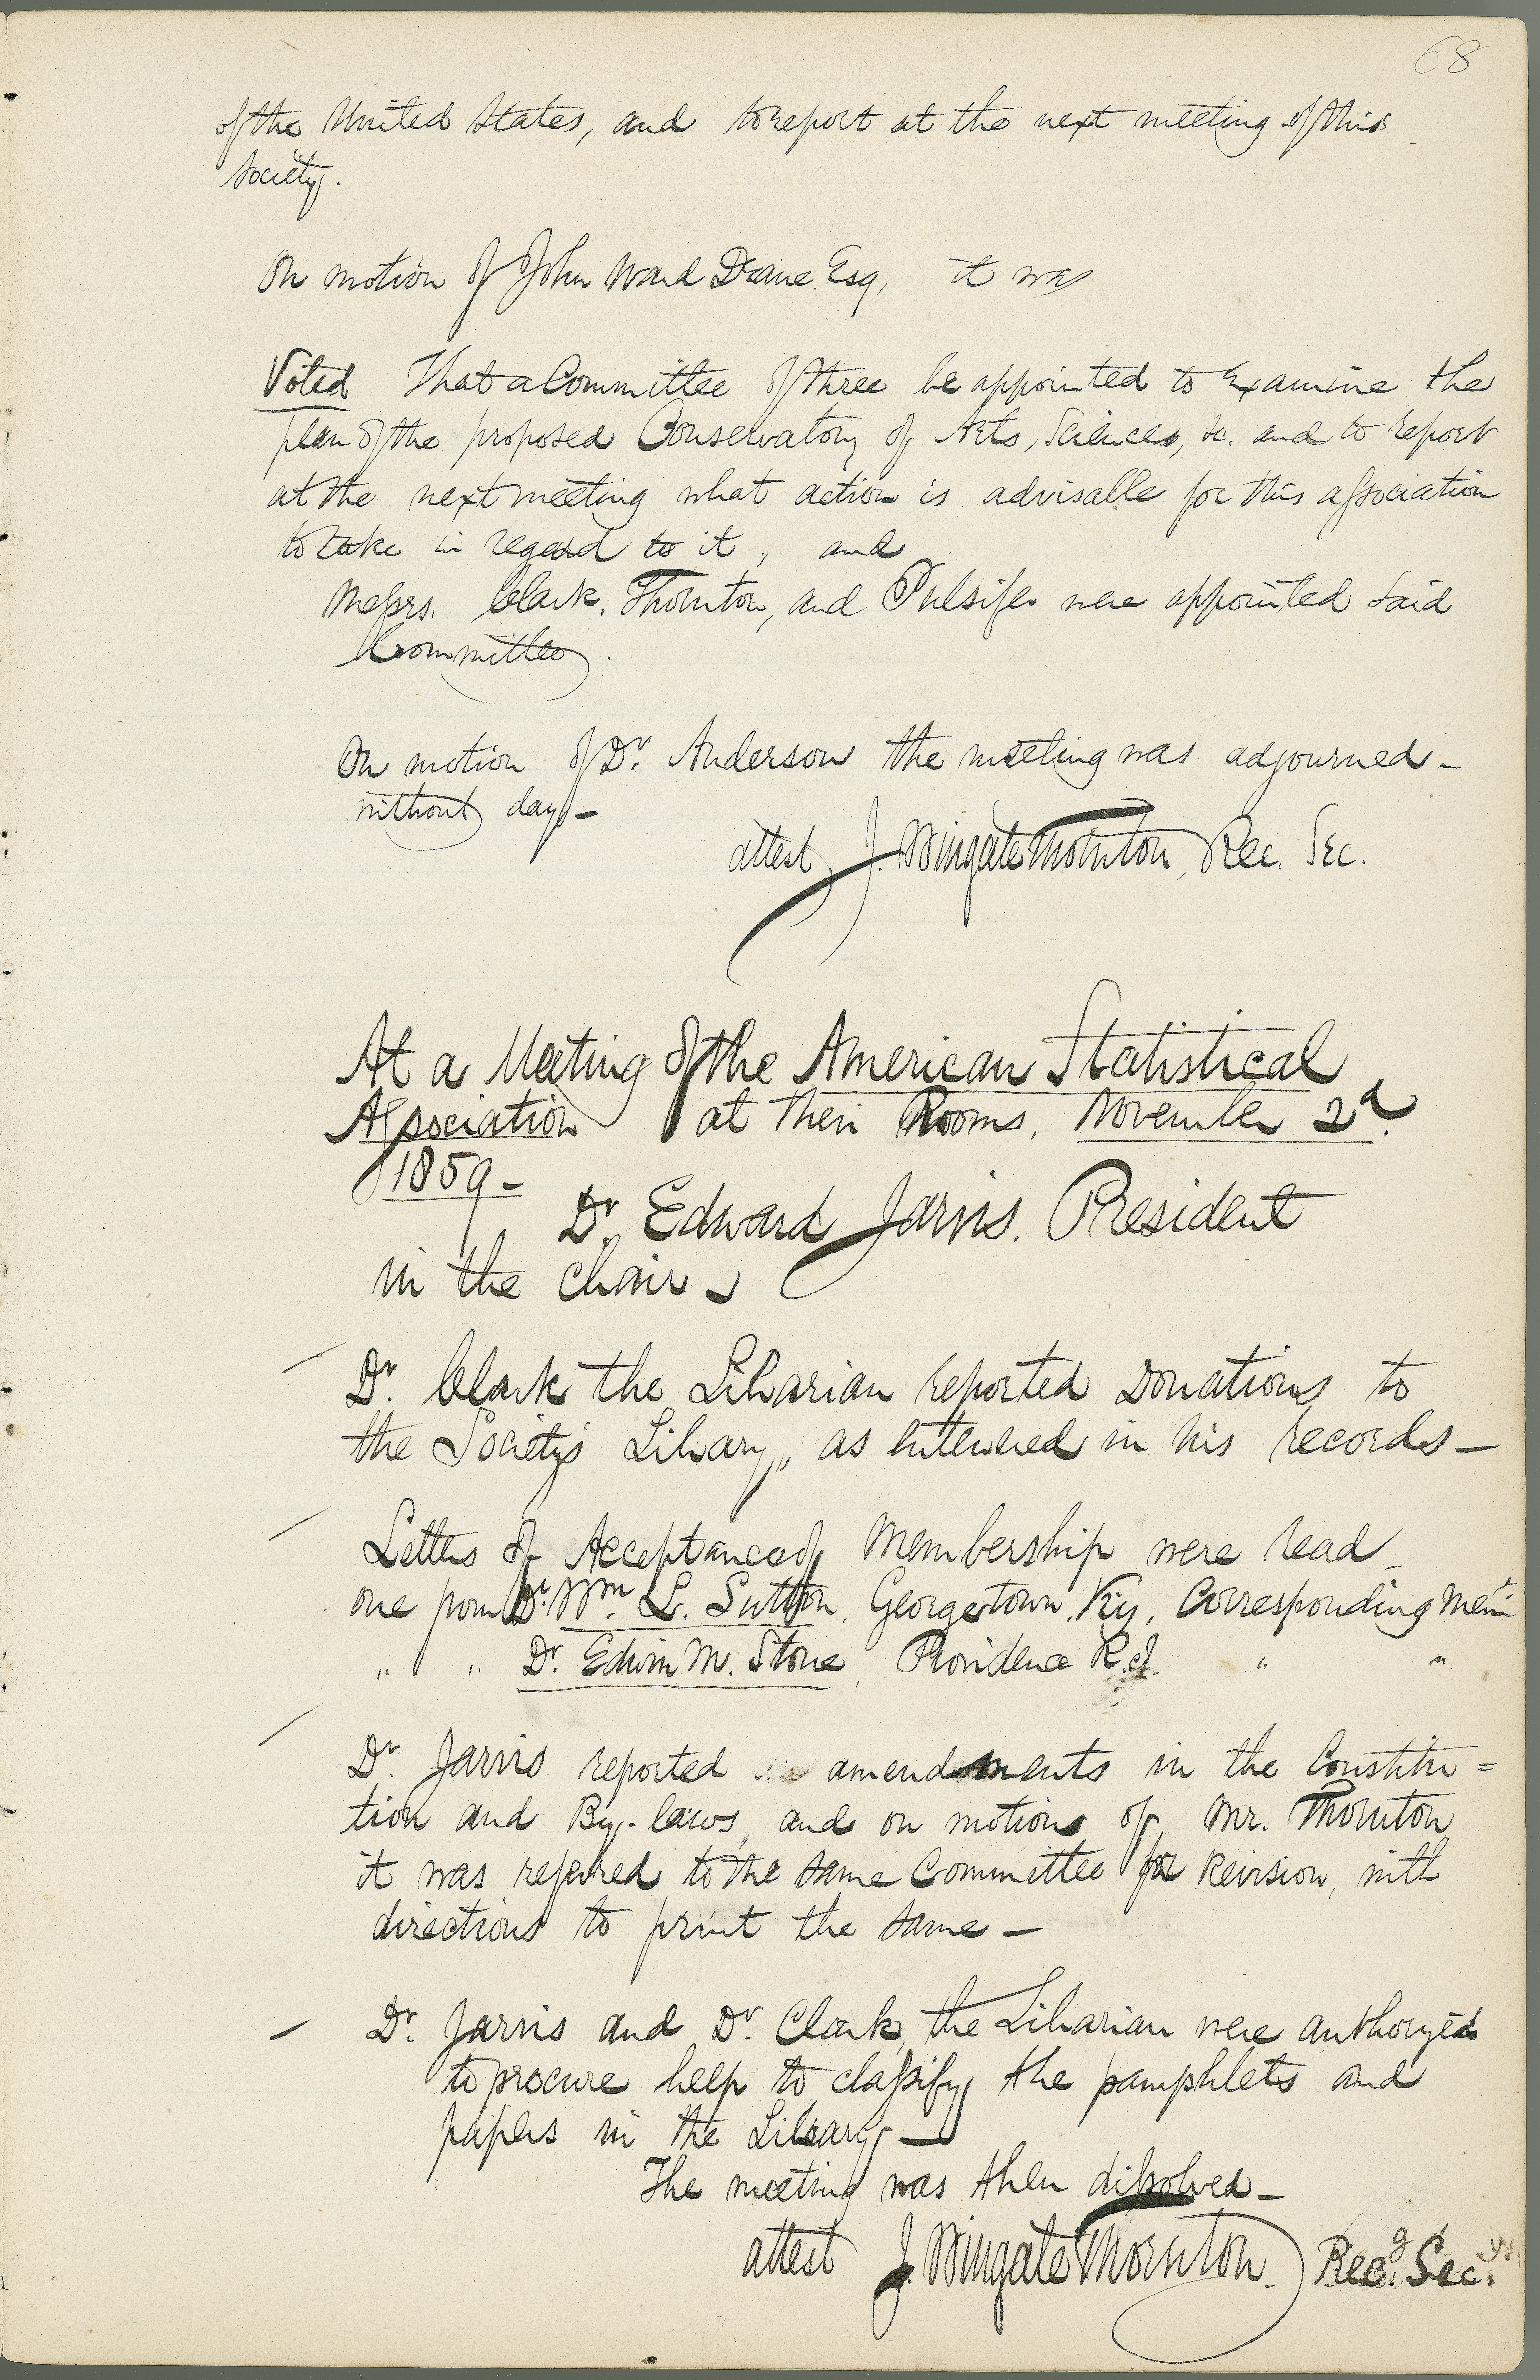 68
of the United States, and to report at the next meeting of this
Society.
On motion of John Ward Deane Esq, it was
Voted That a Committee of three be appointed to examine the
plan of the proposed Conservatory of Arts, Sciences, &c. and to report
at the next meeting what action is advisable for this association
to take in regard to it, and
Messrs. Clark, Thornton, and Pulsifer were appointed said
Committee.
On motion of Dr. Anderson the meeting was adjourned -
without day -
attest J. Wingate Thornton, Rec. Sec.
At a Meeting of the American Statistical
Association at their Rooms, November 2d.
1859 -
Dr. Edward Jarvis. President
in the chair -
Dr. Clark the Librarian reported Donations to
the Society's Library, as entered in his records -
Letters of Acceptance of Membership were read -
one from Dr. Wm. L. Sutton, Georgetown, Ky, Corresponding Mem
" " Dr. Edwin M. Stone, Providence R.I. " "
Dr. Jarvis reported amendments in the Constitu=
tion and By-laws, and on motion of Mr. Thornton
it was referred to the same Committee for Revision, with
directions to print the same -
Dr. Jarvis and Dr. Clark, the Librarian were authorized
to procure help to classify the pamphlets and
papers in the Library -
The meeting was then dissolved -
attest J. Wingate Thornton. Recg. Secy.